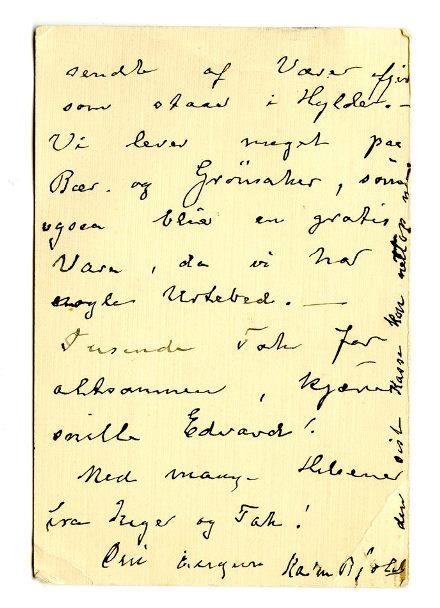 sendt af
som staar i Hylder. -
Vi lever meget paa
Bær. og Grönsaker, som
ogsaa blir en gratis
Vare, da vi har
nogle Urtebed. —
Tusende Tak for
altsammen, kjære
snille Edvard!
Med mange Hilsener
fra Inger og Tak!
Din
den sist Kasse kom netop